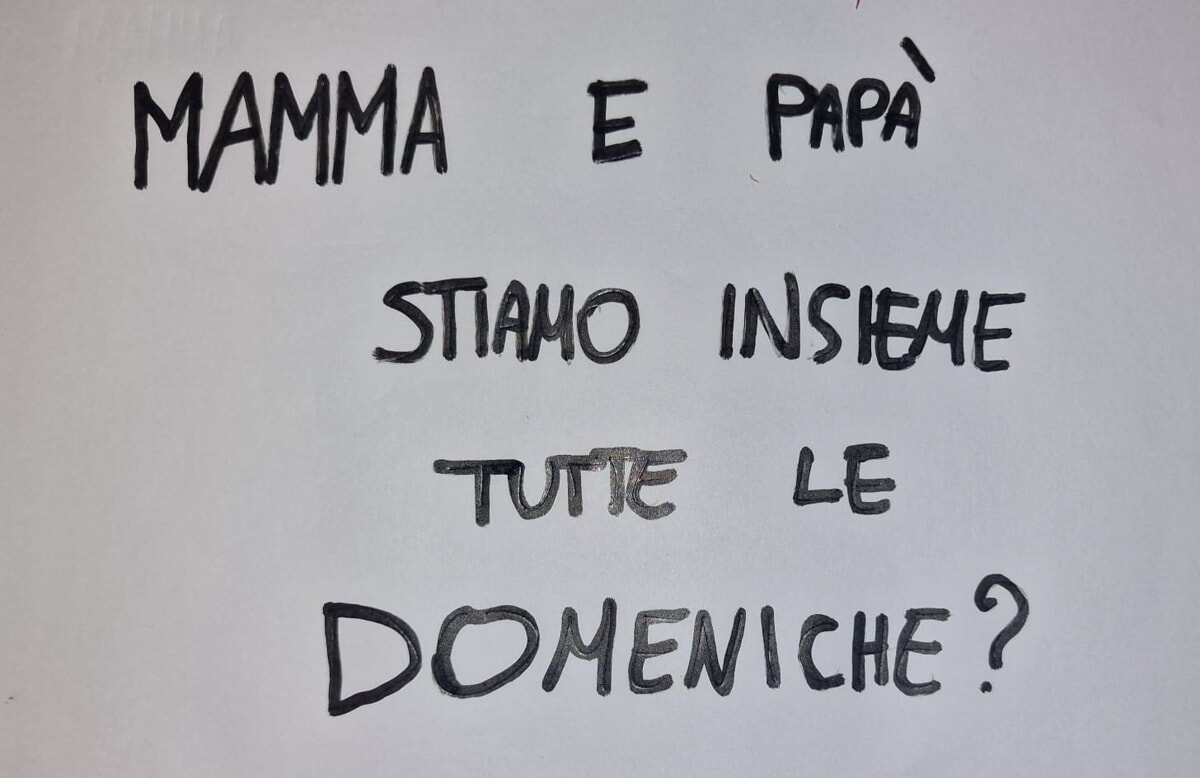 MAMMA E PAPÀ
STIAMO INSIEME
TUTTE LE
DOMENICHE?